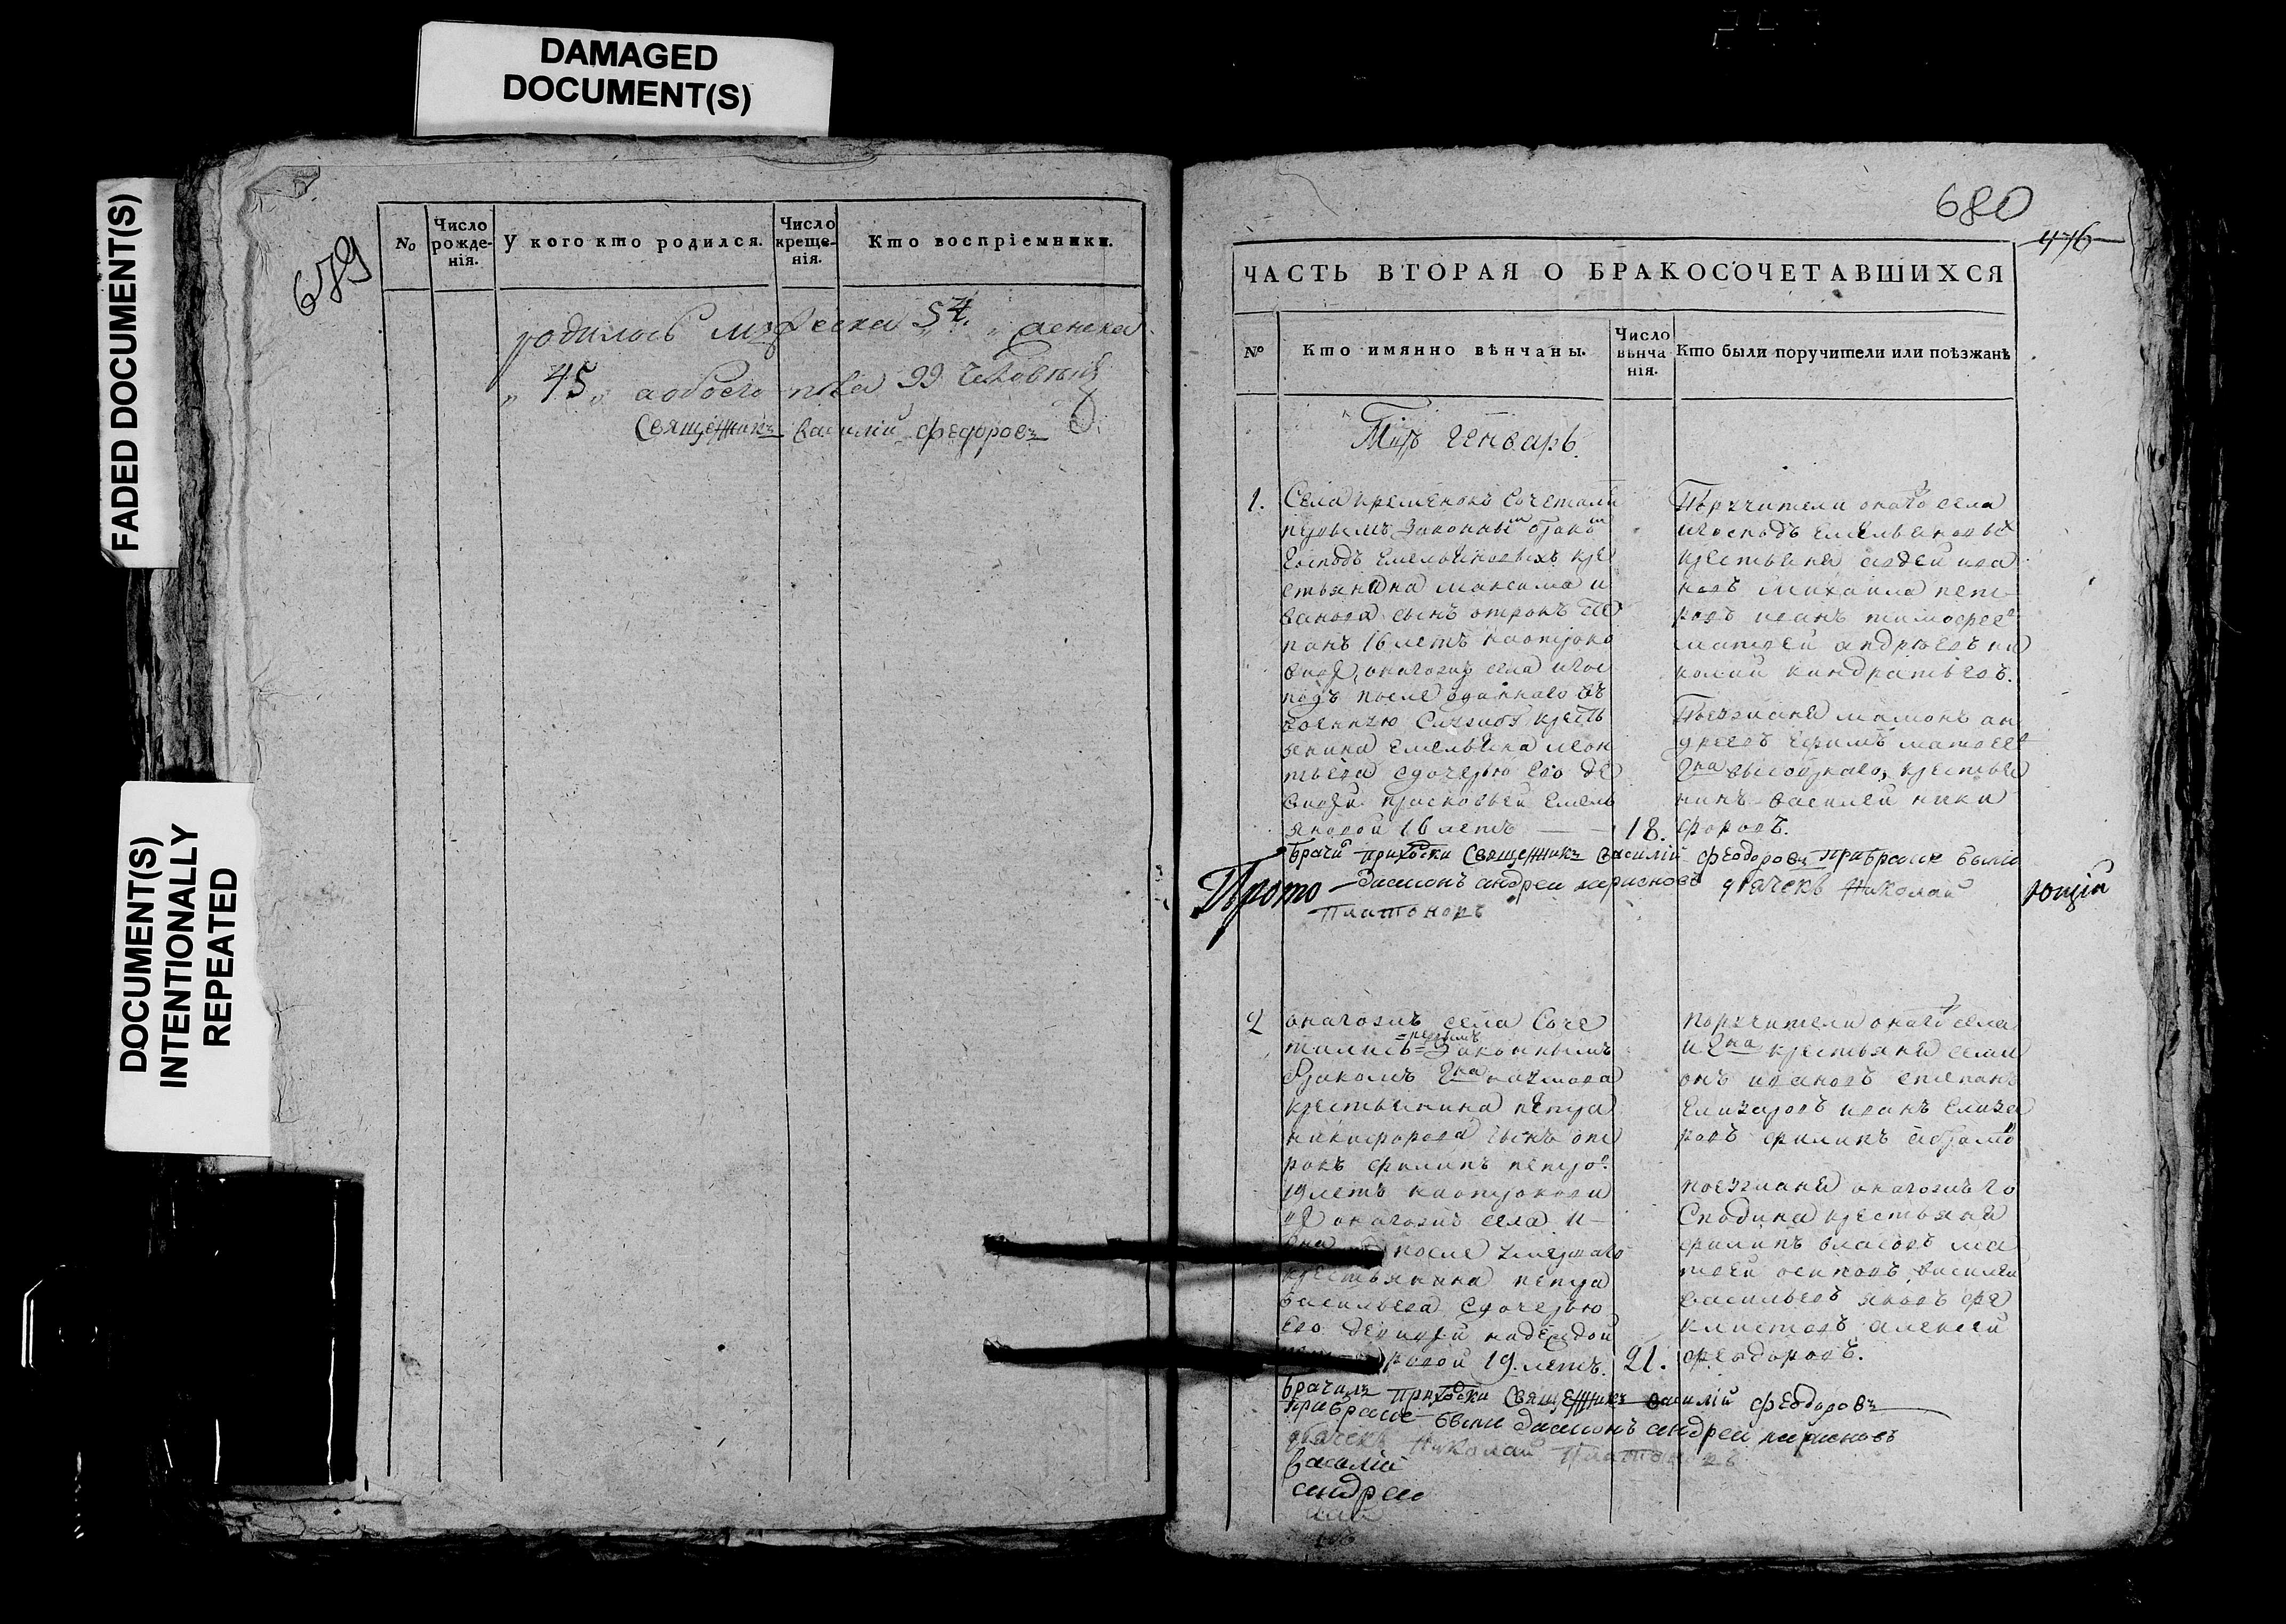 DAMAGED
DOCUMENT(S)
FADED DOCUMENT(S)
DOCUMENT(S)
INTENTIONALLY
REPEATED
679
№
Число рожде-нія.
У кого кто родился.
Число креще-нія.
Кто воспріемники.
родилось мужеска 54 женска
45 а обоего пола 99 человекъ
Священникъ василій федоровъ
680
476
ЧАСТЬ ВТОРАЯ О БРАКОСОЧЕТАВШИХСЯ
№
Кто имянно вѣнчаны.
Число вѣнча нія.
Кто были поручители или поѣзжанѣ
Мцъ генварь.
1.
Села кременокъ сочетали
первымъ законнымъ бракъмъ
господъ емельяновыхъ кре
стьянина максима и
ванова сынъ отрокъ сте
панъ 16 летъ
онагожъ села
после отданнаго въ
военную службу кресть
янина емельяна леон
тьева здочерью его де
вицей прасковьей емель
яновой 16 летъ
18.
Поручители онаго села
игосподъ емельяновыхъ
крестьяне авдей ива
новъ михаила пет
ровъ иванъ тимофеев
матвей андреевъ ни
колай кандратьевъ.
Поезжане мамонъ ан
дреевъ ефимъ матвеев
гна крестья
нинъ василей ники
форовъ.
брачи приходски Священникъ василій феодоровъ прибраке были
диаконъ андреи ларионовъ дьячекъ николай
платоновъ
Прото
ющій
2
онагожъ села соче
тались первымъ законнымъ
бракомъ гна
крестьянина петра
никифорова сынъ от
рокъ филипъ петро
19 летъ
онагожъ села и
гна после умершаго
крестьянина петра
васильева здочерью
его девицей надеждой
19 летъ.
21.
поручители онаго села
и гна крестьяне семи
онъ ивановъ степанъ
елизаровъ иванъ елиза
ровъ филипъ абрамо
поезжане онагожъ го
сподина крестьяне
филипъ власовъ ма
твей осиповъ, василеи
васильевъ яковъ фе
клистовъ алексей
феодоровъ.
брачилъ приходски Священникъ василій феодоровъ
прибраке были диаконъ андреи ларионовъ
дьячекъ николай платоновъ
василій
андреи